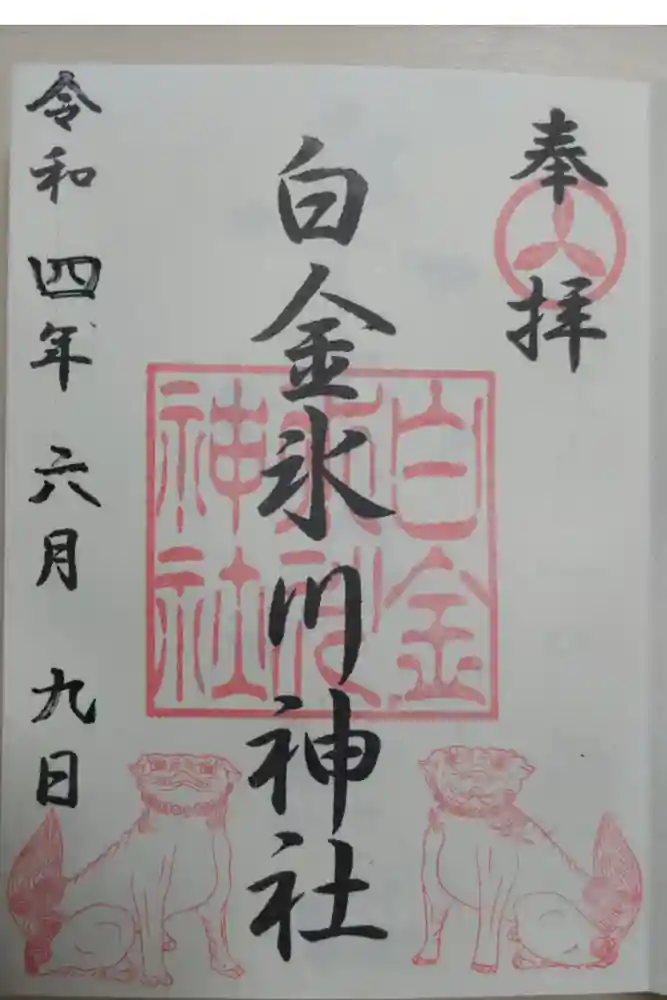 奉拝
白金氷川神社
白金
神社
令和四年六月九日